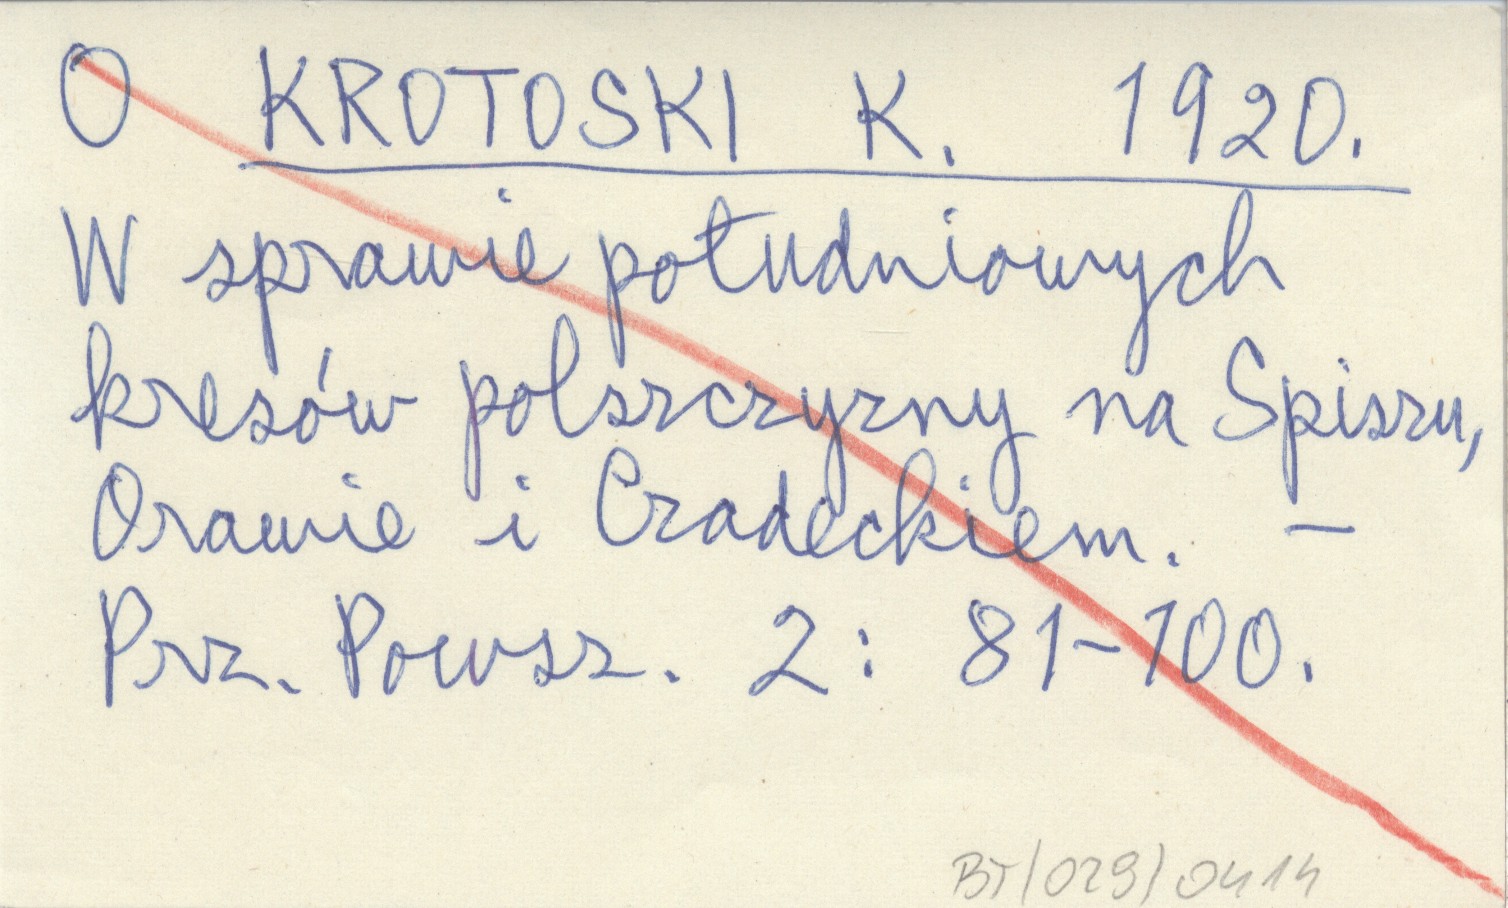 O KROTOSKI K. 1920.
W sprawie południowych
kresów polszczyzny na Spiszu,
Orawie i Czadeckiem. –
Prz. Powsz. 2: 81-100.
BT/029/0414